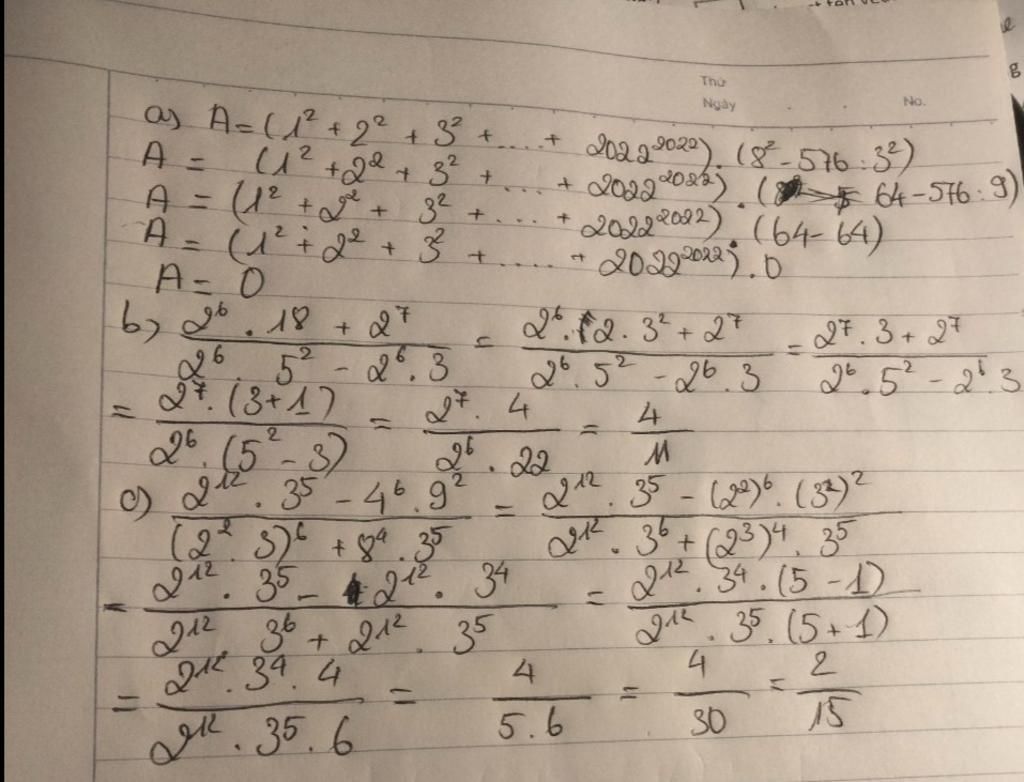 Thứ
Ngày No.
a) A = (1² + 2² + 3² + .... + 2022²⁰²²).(8² - 576 : 3²)
A = (1² + 2² + 3² + .... + 2022²⁰²²).(64 - 576 : 9)
A = (1² + 2² + 3² + .... + 2022²⁰²²).(64 - 64)
A = (1² + 2² + 3² + .... + 2022²⁰²²).0
A = 0
b) (2⁶ . 18 + 2⁷)/(2⁶ . 5² - 2⁶ . 3) = (2⁶ . 2 . 3² + 2⁷)/(2⁶ . 5² - 2⁶ . 3) = (2⁷ . 3 + 2⁷)/(2⁶ . 5² - 2⁶ . 3)
= (2⁷ . (3 + 1))/(2⁶ . (5² - 3)) = (2⁷ . 4)/(2⁶ . 22) = 4/11
c) (2¹² . 3⁵ - 4⁶ . 9²)/((2² . 3)⁶ + 8⁴ . 3⁵) = (2¹² . 3⁵ - (2²)⁶ . (3²)²)/(2¹² . 3⁶ + (2³)⁴ . 3⁵)
= (2¹² . 3⁵ - 2¹² . 3⁴)/(2¹² 3⁶ + 2¹² . 3⁵) = (2¹² . 3⁴ . (5 - 1))/(2¹² . 3⁵ . (5 + 1))
= (2¹² . 3⁴ . 4)/(2¹² . 3⁵ . 6) = 4/(5 . 6) = 4/30 = 2/15